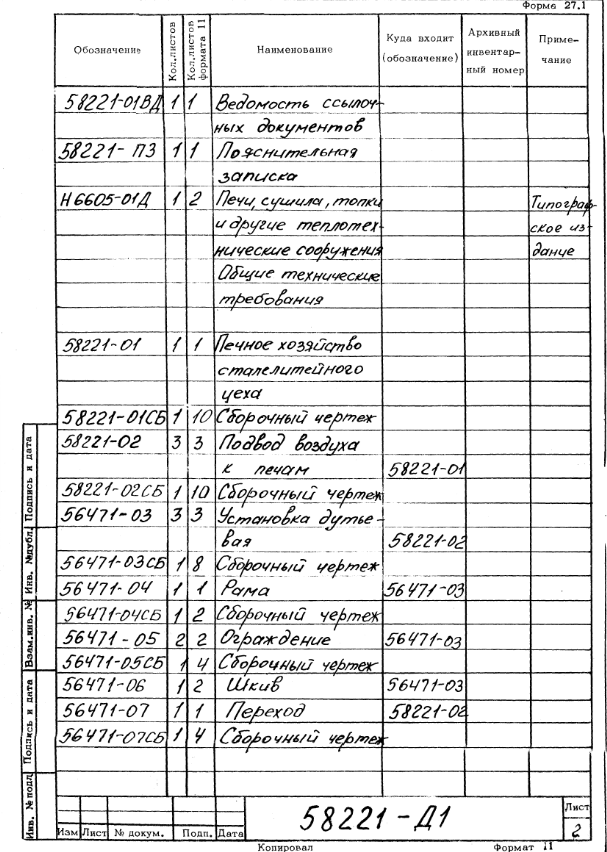 Форма 27.1
Обозначение Кол.листов Кол.листов формата 11 Наименование Куда входит (обозначение) Архивный инвентарный номер Примечание
58221-01ВД 1 1 Ведомость ссылоч-
ных документов
58221-ПЗ 1 1 Пояснительная
записка
Н6605-01Д 1 2 Печи, сушила, топки Типограф-
и другие теплотех- ское из-
нические сооружения дание
Общие технические
требования
58221-01 1 1 Печное хозяйство
сталелитейного
цеха
58221-01СБ 1 10 Сборочный чертеж
58221-02 3 3 Подвод воздуха
к печам 58221-01
58221-02СБ 1 10 Сборочный чертеж
56471-03 3 3 Установка дутье-
вая 58221-02
56471-03СБ 1 8 Сборочный чертеж
56471-04 1 1 Рама 56471-03
56471-04СБ 1 2 Сборочный чертеж
56471-05 2 2 Ограждение 56471-03
56471-05СБ 1 4 Сборочный чертеж
56471-06 1 2 Шкив 56471-03
56471-07 1 1 Переход 58221-02
56471-07СБ 1 4 Сборочный чертеж
Подпись и дата
Инв. №дубл.
Взам.инв. №
Подпись и дата
Инв. № подл.
Изм Лист № докум. Подп. Дата
58221-Д1
Лист
2
Копировал Формат 11